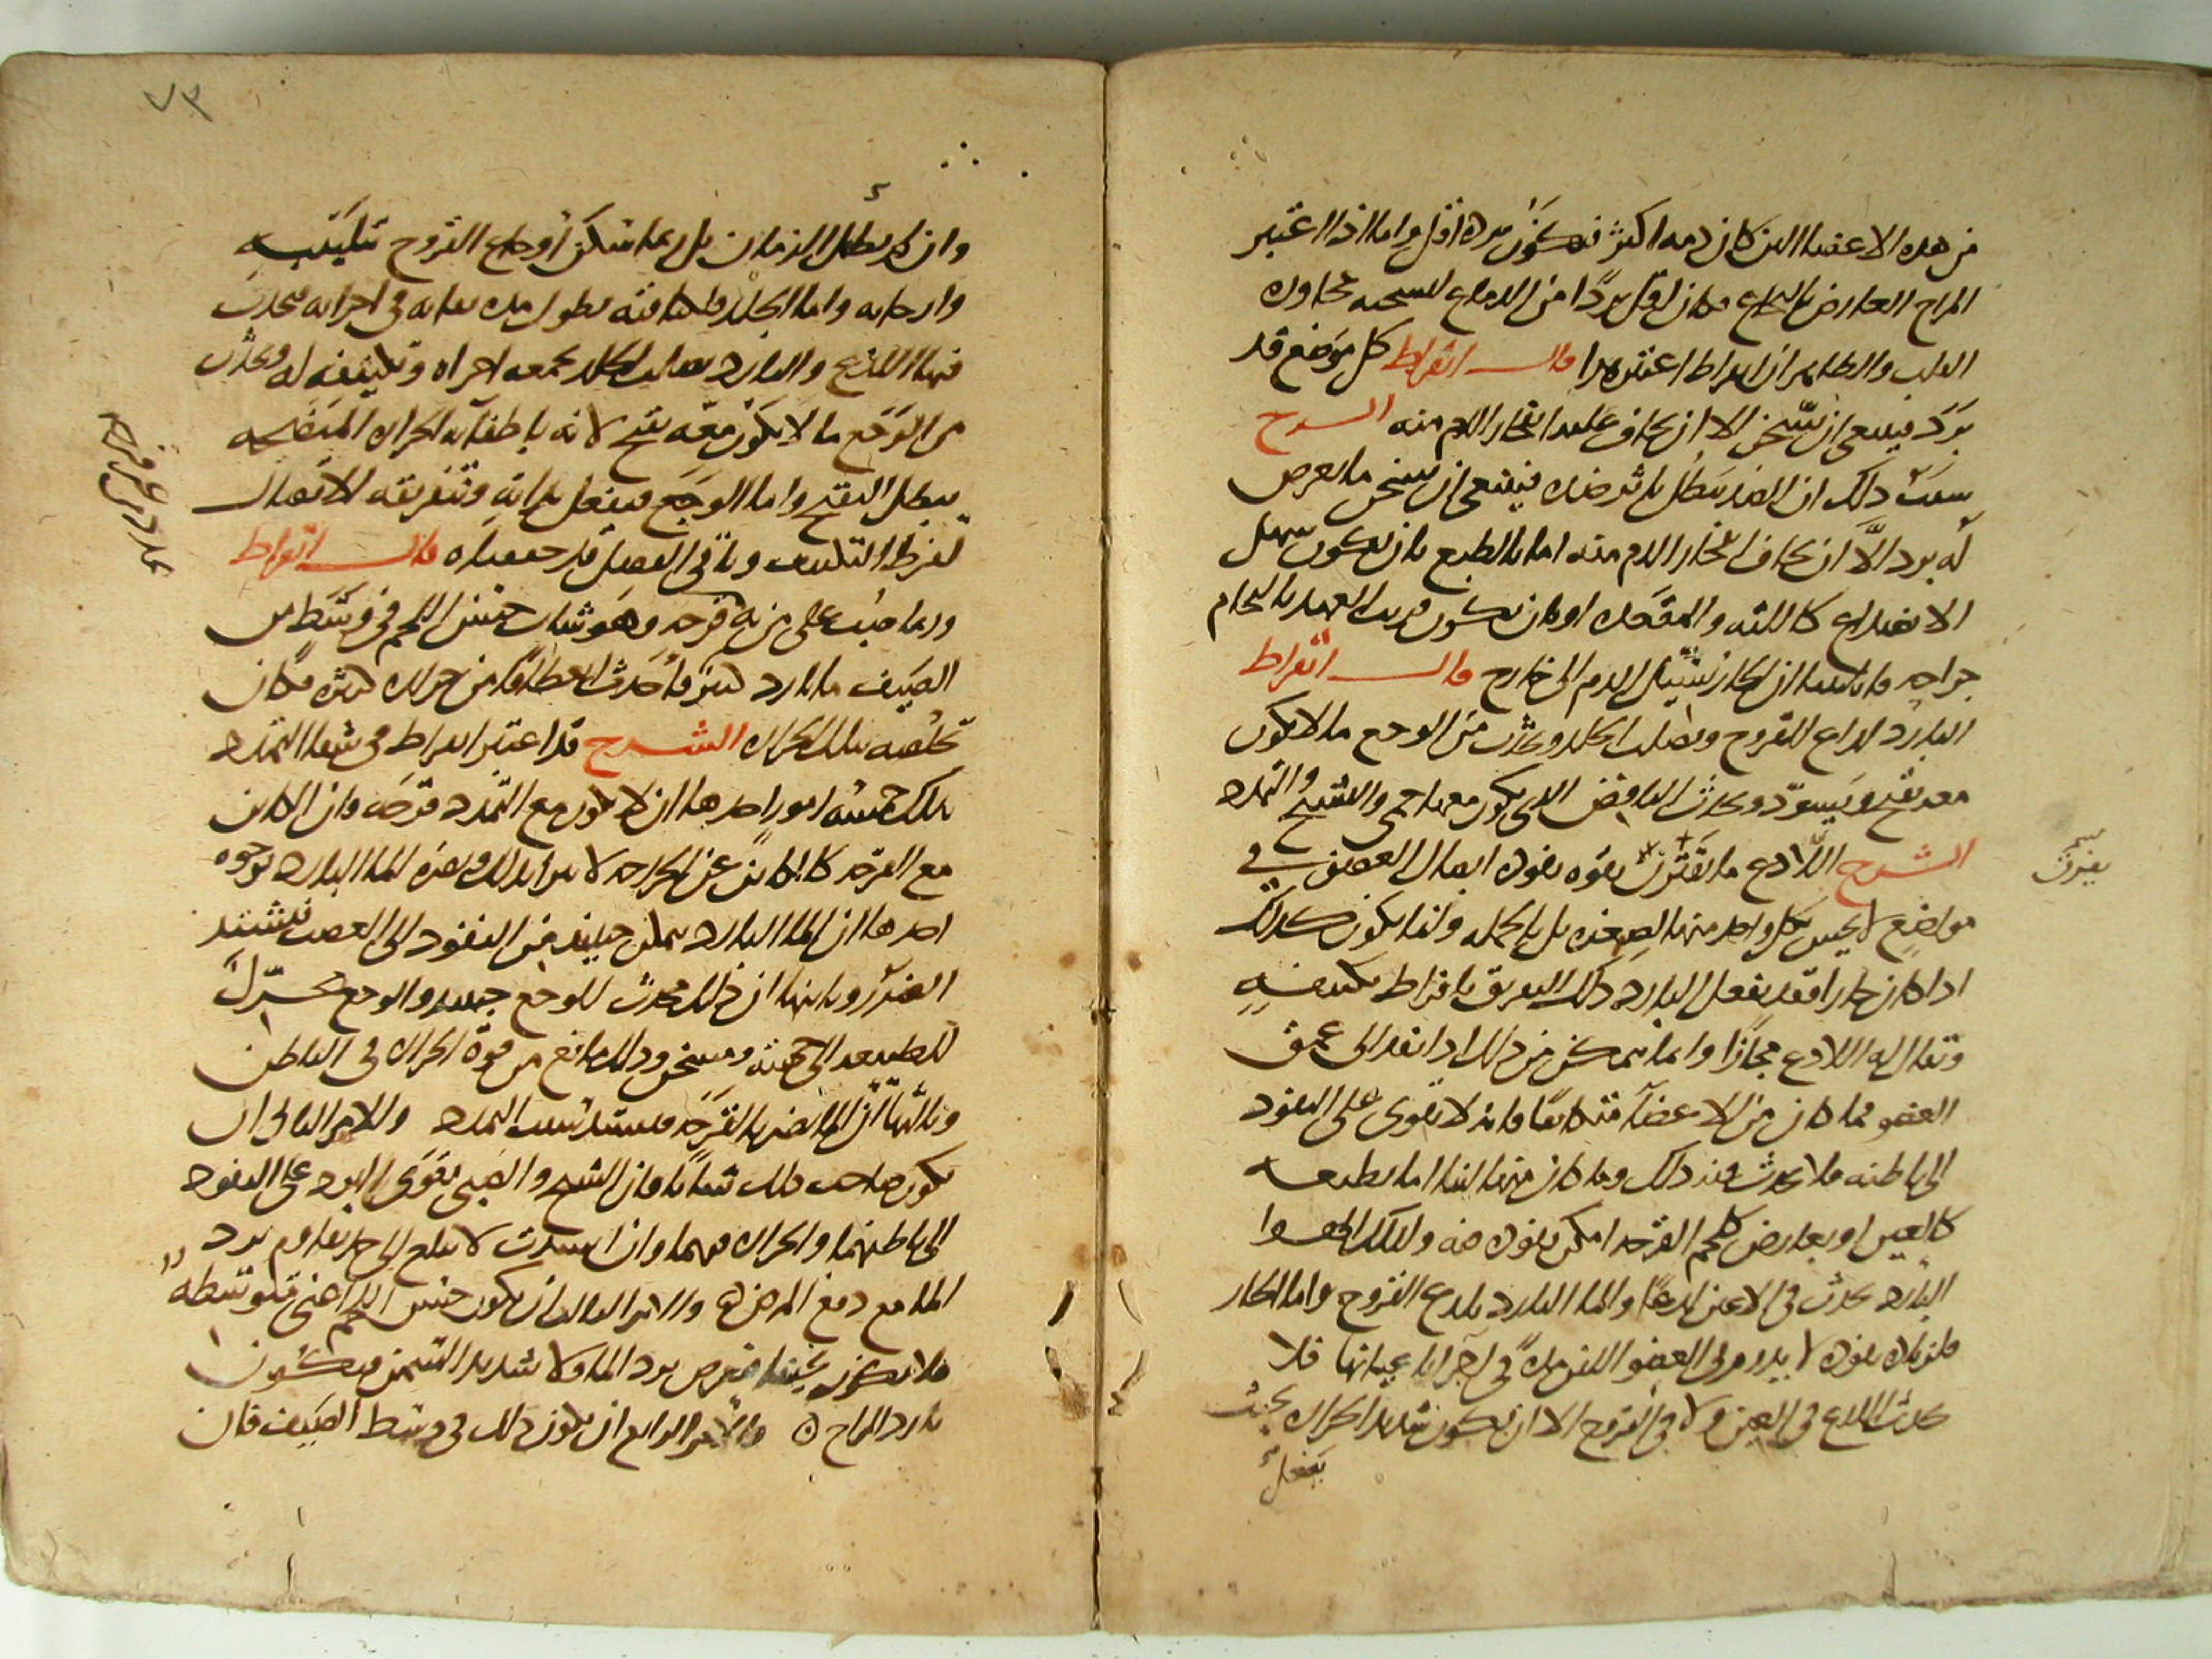 من هذه الاعضا الذى كان دمه اكثر فيكون برده اقل واما اذا اعتبر
المزاج العارض فالنخاع كان اقل بردا من الدماغ لتسخنه بمجاورة
القلب والظاهر ان ابقراط اعتبر هذا قال ابقراط كل موضع قد
برد فينبغى ان يسخن الا ان يخاف عليه انفجار الدم منه الشرح
سبب ذلك ان الضد يبطل باثر ضده فينبغى ان يسخن ما يعرض
له برد الا ان يخاف انفجار الدم منه اما بالطبع بان يكون سهل
الانصداع كاللثه والمقعده او بان يكون قريب العهد بالتحام
جراحه فان الحار يسيل الدم الى خارج قال ابقراط
البارد لذاع للقروح ويصلب الجلد ويحدث من الوجع ما لا يكون
معه تقيح ويسود ويحدث النافض الذى يكون معها حمى والتشنج والتمدد
الشرح اللاذع ما يفرق بقوه نفوذه اتصال العضو فى
مواضع لا يحس بكل واحد منها لصغره بل بالجمله وانما يكون كذلك
اذا كان حارا فقد يفعل البارد ذلك التفريق بافراط تكثيفه
ويقال له اللاذع مجازا وانما يمكن من ذلك اذا نفذ الى عمق
العضو فما كان من الاعضآ متكاثفا فانه لا يقوى على النفوذ
الى باطنه فلا يحدث فيه ذلك وما كان منها لينا اما بطبعه
كالعين او بعارض كلحم القرحه امكن نفوذه فيه ولذلك الهوا
البارد يحدث فى الاعين لذعا والما البارد يلذع القروح واما الحار
فلزياده نفوذه لا يبدد فى العضو اللين مده فى اجزاء باعيانها فلا
يحدث اللذع فى العين ولا فى القروح الا ان يكون شديد الحراره بحيث
يفعل
يفرق
٧٣
وان لم يطل الزمان بل ربما سكن اوجاع القروح بتليينه
وارخايه واما الجلد فلكثافته يطول مده بقايه فى اجزايه فيحدث
فيها اللذع والبارد يصلب الجلد بجمعه اجزاه وتكثيفه له ويحدث
من الوجع ما لا يكون معه تقيح لانه باطفآيه الحراره المنضجه
يبطل التقيح واما الوجع فيفعل بذاته وتفريقه الاتصال
لفرط التكثيف وباقى الفصل قد حققناه قال ابقراط
وربما صب على من به تمدد من غير قرحه وهو شاب حسن اللحم فى وسط من
الصيف ما بارد كثير فاحدث انعطافا من حراره كثيره فكان
تخلصه بتلك الحراره الشرح قد اعتبر ابقراط فى شفا التمدد
بذلك خمسه امور احدها ان لا يكون مع التمدد قرحه فان الكاين
مع القرحه كالكاين عن الجراحه لا يبرا بذلك ويضره الما البارد لوجوه
احدها ان الما البارد يمكن حينئذ من النفوذ الى العصب فيشتد
الضرر وثانيها ان ذلك محدث للوجع جدا والوجع محرك
للطبيعه الى جهته ومسخن وذلك مانع من قوة الحراره فى الباطن
وثالثها ان الما يضر بالقرحه فيشتد سبب التمدد والامر الثانى ان
يكون صاحب ذلك شابا فان الشيخ والصبى يقوى البرد على النفوذ
الى باطنهما والحراره فيهما وان اشتدت لا تبلغ الى حد يقاوم برد
الما مع دفع المرض والامر الثالث ان يكون حسن اللحم اعنى متوسطه
فلا يكون نحيفا فيغوص برد الما ولا شديد السمن فيكون
بارد المزاج والامر الرابع ان يكون ذلك فى وسط الصيف فان
تمدد من غير قرحه